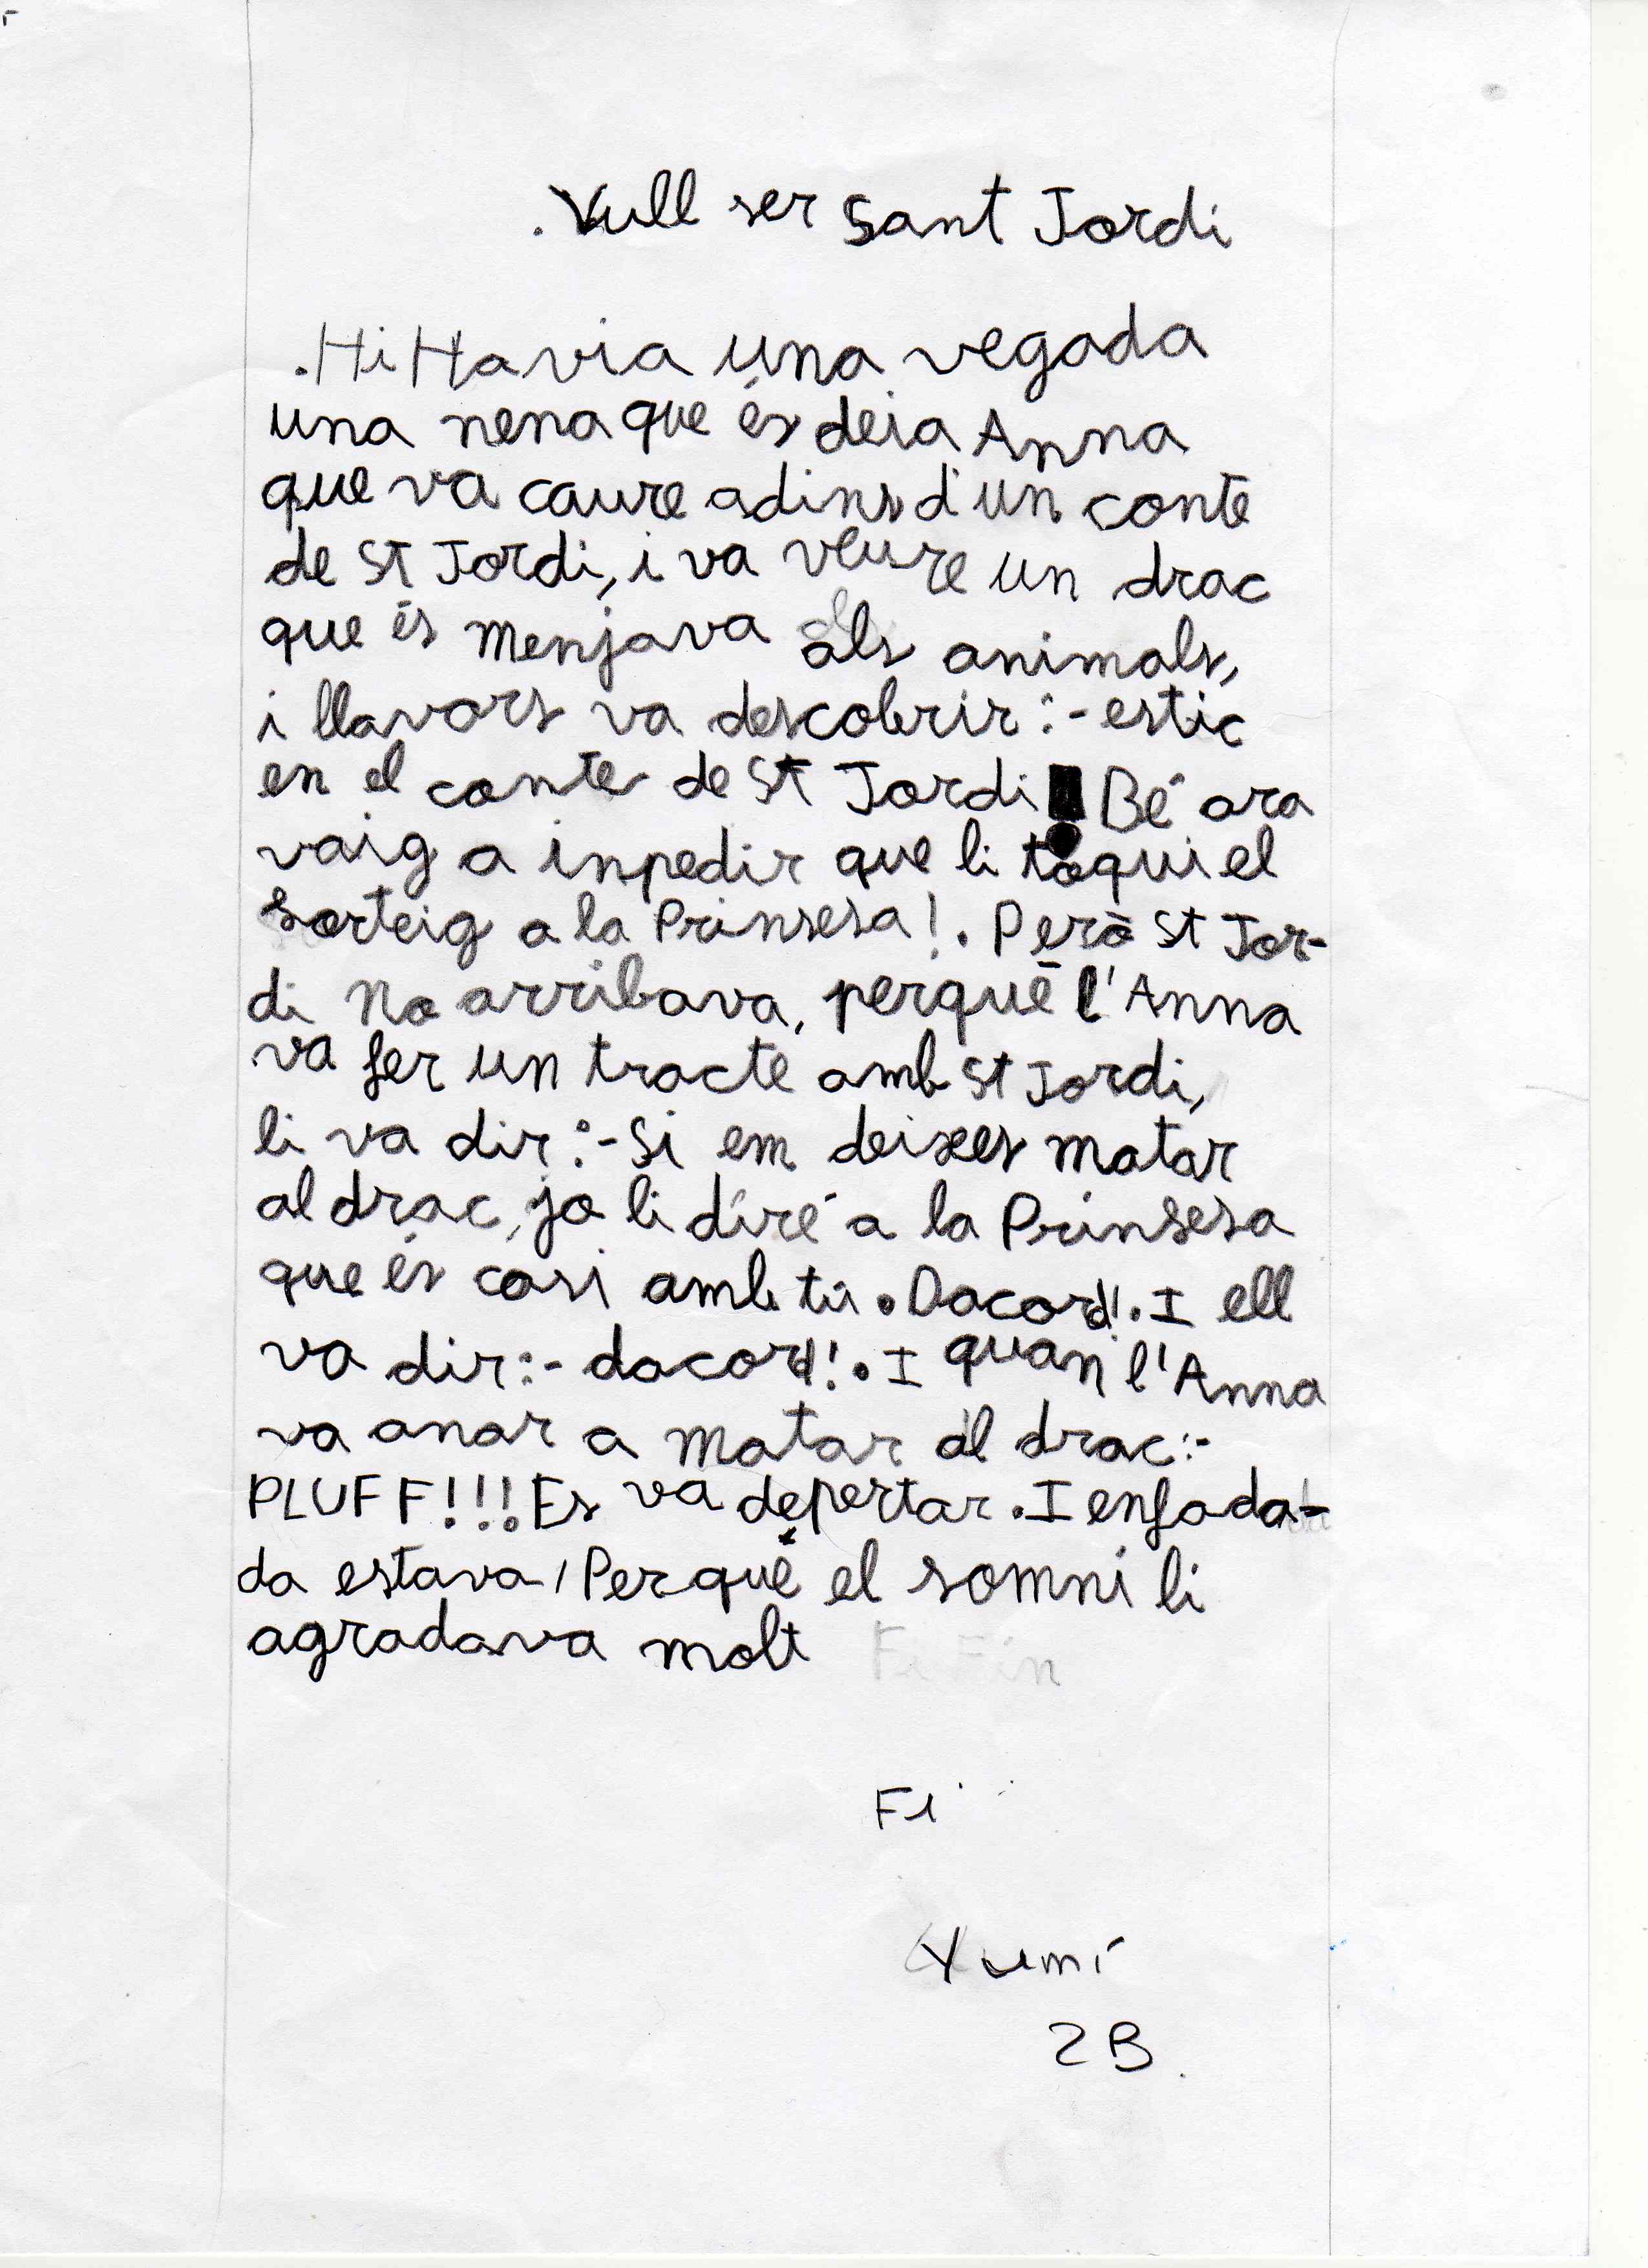 .Vull ser Sant Jordi
.Hi Havia una vegada
una nena que és deia Anna
que va caure adins d'un conte
de St Jordi, i va veure un drac
que és menjava als animals,
i llavors va descobrir:-estic
en el conte de St Jordi! Bé ara
vaig a inpedir que li toqui el
sorteig a la Prinsesa!. Però St Jor-
di No arribava, perquè l'Anna
va fer un tracte amb St Jordi,
li va dir:-Si em deixes matar
al drac, jo li diré a la Prinsesa
que és casi amb tú. Dacord!. I ell
va dir:-dacord!. I quan l'Anna
va anar a matar al drac:-
PLUFF!!! Es va depertar. I enfada-
da estava, Perquè el somni li
agradava molt
Fi Fin
Fi
Yumi
2B